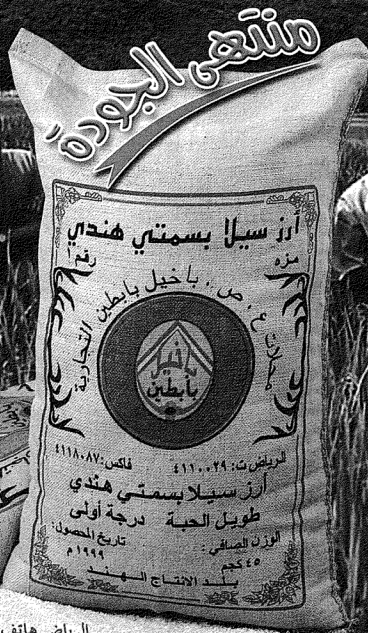 منتهى الجودة
أرز سيلا بسمتي هندي
مزه
رقم ١
محلات ع . ص . باخيل بابطين التجارية
باخيل
بابطين
الرياض ت: ٤١١٠٠٢٩ فاكس: ٤١١٨٠٨٧
أرز سيلا بسمتي هندي
طويل الحبة درجة أولى
الوزن الصافي: تاريخ المحصول:
٤٥ كجم ١٩٩٩م
بلد الانتاج الهند
الرياض هاتف